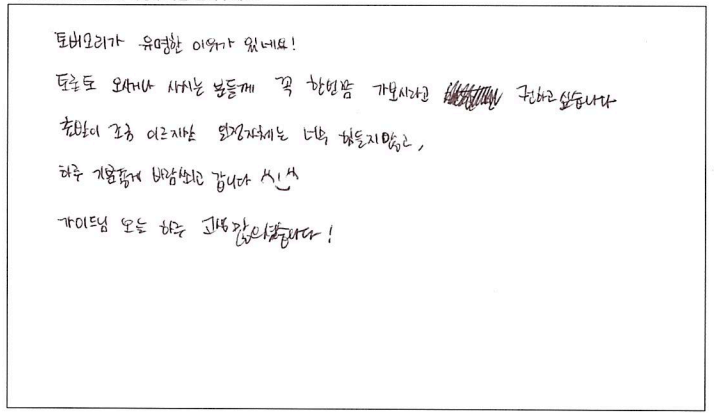 토버모리가 유명한 이유가 있네요!
토론토 오시거나 사시는 분들께 꼭 한번쯤 가보시라고 권하고싶습니다
출발이 조금 이르지만 일정자체는 너무 힘들지않고,
하루 기분좋게 바람쐬고 갑니다 ^^
가이드님 오늘 하루 고생많으셨습니다!